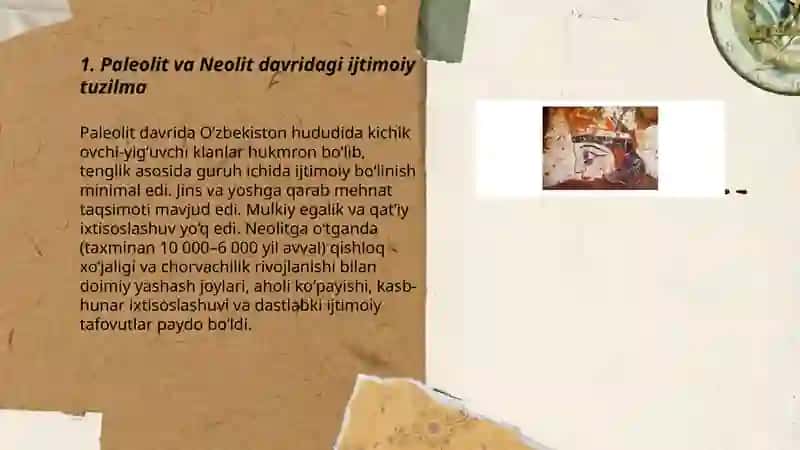 1. Paleolit va Neolit davridagi ijtimoiy
tuzilma
Paleolit davrida O‘zbekiston hududida kichik
ovchi-yig‘uvchi klanlar hukmron bo‘lib,
tenglik asosida guruh ichida ijtimoiy bo‘linish
minimal edi. Jins va yoshga qarab mehnat
taqsimoti mavjud edi. Mulkiy egalik va qat’iy
ixtisoslashuv yo‘q edi. Neolitga o‘tganda
(taxminan 10 000–6 000 yil avval) qishloq
xo‘jaligi va chorvachilik rivojlanishi bilan
doimiy yashash joylari, aholi ko‘payishi, kasb-
hunar ixtisoslashuvi va dastlabki ijtimoiy
tafovutlar paydo bo‘ldi.